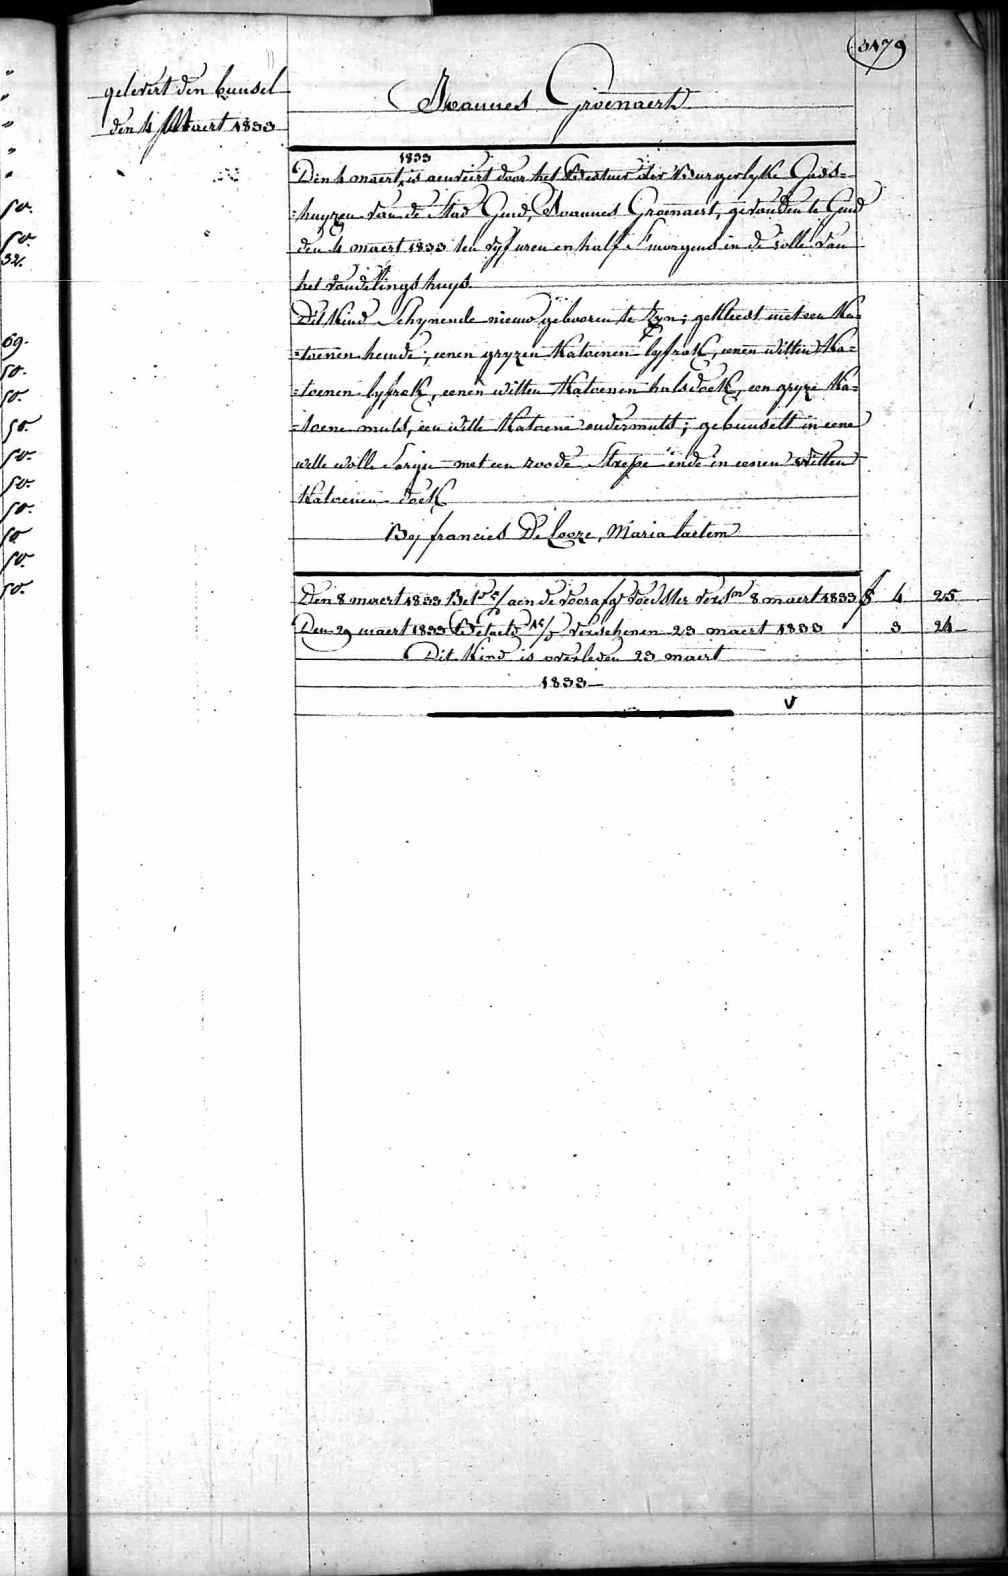 3479
gelevert den bunsel
den 4 Maert 1833
Joannes Groenaert
1833
Den 4 maert is aenveirt door het Bestuur der Burgerlyke Gods=
=huyzen van de Stad Gend, Joannes Groenaert, gevonden te Gend
den 4 maert 1833 ten vyf uren en half s'morgens in de rolle van
het vondelingshuys
Dit Kind schynende nieuw gebooren te zyn; gekleedt met een Ka=
=toenen hemde, eenen gryzen Katoenen lyfrok, eenen witten Ka=
=toenen lyfrok, eenen witten Katoenen halsdoek, een gryze Ka=
=toene muts, een witte Katoene ondermuts; gebunselt in eene
witte wolle sargie met een roode strepe ende in eenen witten
Katoenen doek
By francies De Cooze, Maria taelem
Den 8 maert 1833 Bet aen de voorafg voedster vers 8 maert 1833 f 4 25
Den 29 maert 1833 Betaeld verschenen 23 maert 1833 3 24
Dit Kind is overleden 23 maert
1833
V
50.
50.
32.
69.
50.
50
50.
50.
50.
50.
50
50.
50.